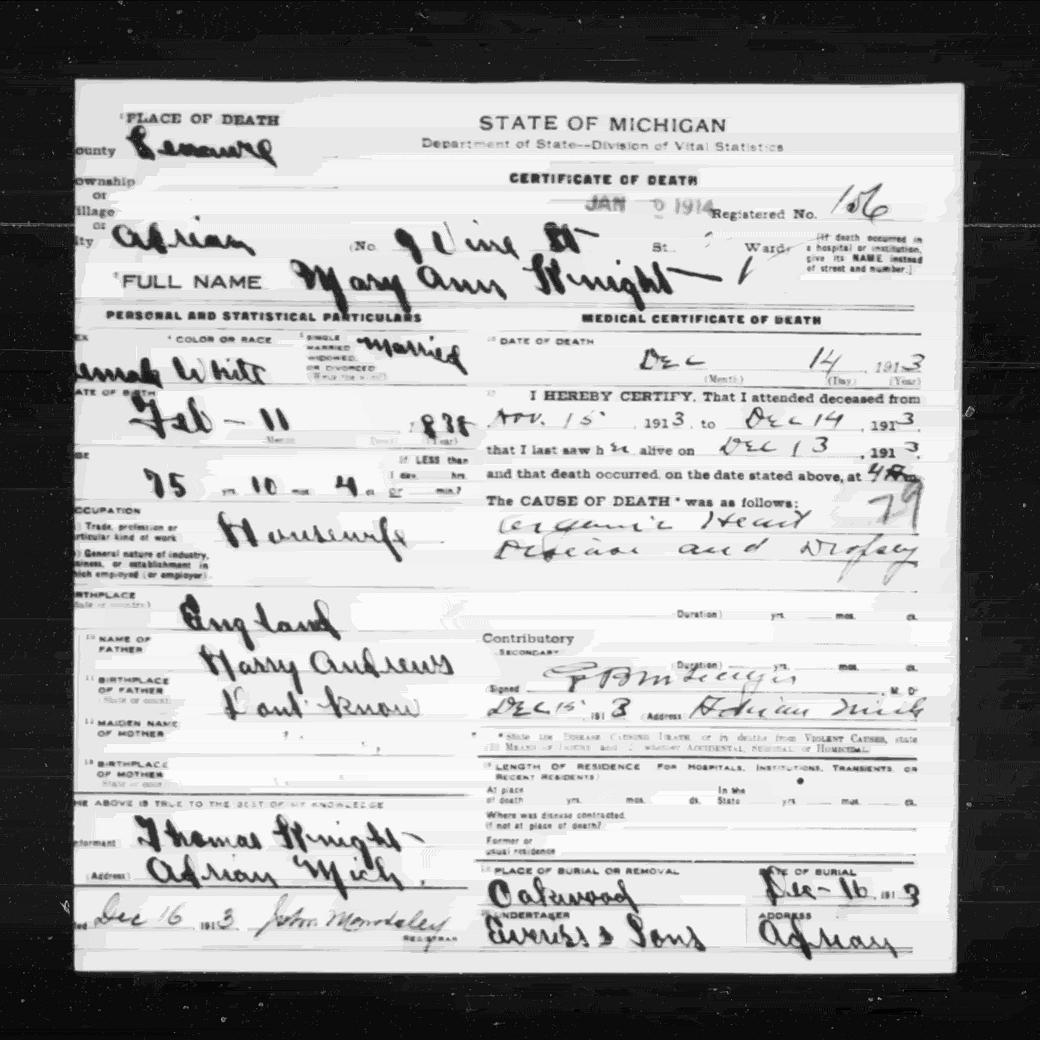 PLACE OF DEATH
ounty Lenawee
ownship
or
illage
or
ity Adrian (No. 9 Vine St St. Ward)
STATE OF MICHIGAN
Department of State--Division of Vital Statistics
CERTIFICATE OF DEATH
JAN 1914
Registered No. 156
[If death occurred in
a hospital or institution,
give its NAME instead
of street and number.]
FULL NAME Mary Ann Knight
PERSONAL AND STATISTICAL PARTICULARS
EX
emale
COLOR OR RACE
White
SINGLE
MARRIED
WIDOWED,
OR DIVORCED
Married
ATE OF BIRTH
Feb - 11 1838
(Month) (Year)
GE
75 yrs. 10 mos. 4 ds.
If LESS than
1 day, hrs
or min.?
OCCUPATION
Trade, profession or
rticular kind of work
Housewife
General nature of industry,
siness, or establishment in
hich employed (or employer)
RTHPLACE
(State or country)
England
NAME OF
FATHER
Harry Andrews
BIRTHPLACE
OF FATHER
Dont Know
MAIDEN NAME
OF MOTHER
" "
BIRTHPLACE
OF MOTHER
HE ABOVE IS TRUE TO THE BEST OF MY KNOWLEDGE
nformant Thomas Knight
(Address) Adrian Mich.
led Dec 16 1913 John
REGISTRAR
MEDICAL CERTIFICATE OF DEATH
DATE OF DEATH
Dec 14, 1913
(Month) (Day) (Year)
I HEREBY CERTIFY, That I attended deceased from
Nov. 15, 1913, to Dec 14, 1913,
that I last saw her alive on Dec 13, 1913,
and that death occurred, on the date stated above, at 4 Am
The CAUSE OF DEATH * was as follows:
79
Organic Heart
Disease and Dropsey
(Duration) yrs. mos. ds.
Contributory
SECONDARY
(Duration) yrs. mos. ds.
Signed M. D.
Dec 15 1913 (Address) Adrian Mich
* State the DISEASE CAUSING DEATH, or in deaths from VIOLENT CAUSES, state
MEANS OF INJURY and whether ACCIDENTAL, SUICIDAL or HOMICIDAL.
LENGTH OF RESIDENCE FOR HOSPITALS, INSTITUTIONS, TRANSIENTS, OR
RECENT RESIDENTS)
At place
of death yrs. mos. ds.
In the
State yrs. mos. ds.
Where was disease contracted,
if not at place of death?
Former or
usual residence
PLACE OF BURIAL OR REMOVAL
Oakwood
DATE OF BURIAL
Dec - 16 1913
UNDERTAKER
& Sons
ADDRESS
Adrian